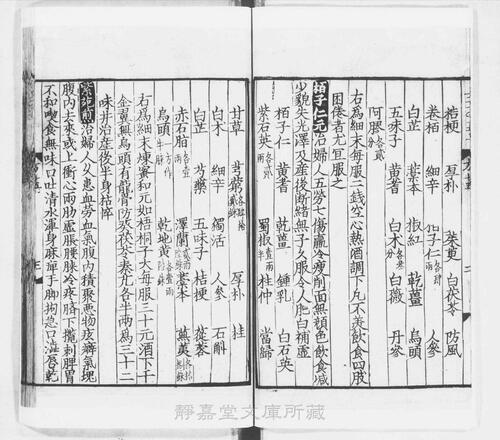 桔梗 厚朴 茱萸 白茯苓 防風
卷栢 細辛 人參
白芷 藁本 椒紅 乾薑 烏頭
五味子 黃耆 白朮 白薇 丹參
阿膠各貳分
右為細末每服二錢空心熱酒調下凡不美飲食四肢
困倦者尤宜服之
栢子仁元治婦人五勞七傷羸冷瘦削面無顏色飲食减
少貌失光澤及産後斷緒無子久服令人肥白補虛
栢子仁 黃耆 乾薑 鍾乳 白石英
紫石英各貳兩 蜀椒壹兩半 杜仲 當歸
甘草 芎藭 厚朴 桂
白朮 細辛 獨活 人參 石斛
白芷 芍藥 五味子 桔梗 蓯蓉
赤石脂各壹兩 澤蘭 藁本 蕪荑
烏頭 乾地黃
右爲細末煉蜜和元如梧桐子大每服三十元酒下千
金翼無烏頭有龍骨防葵茯苓秦艽各半兩為三十二
味并治産後半身枯悴
治婦人久患血勞血氣腹內積聚惡物痃癖氣塊
腹內去來或上衝心兩肋虛脹腰膝冷疼臍下攪刺脾胃
不和喫食無味口吐清水渾身麻痺手脚拘急口澁唇乾
靜嘉堂文庫所藏